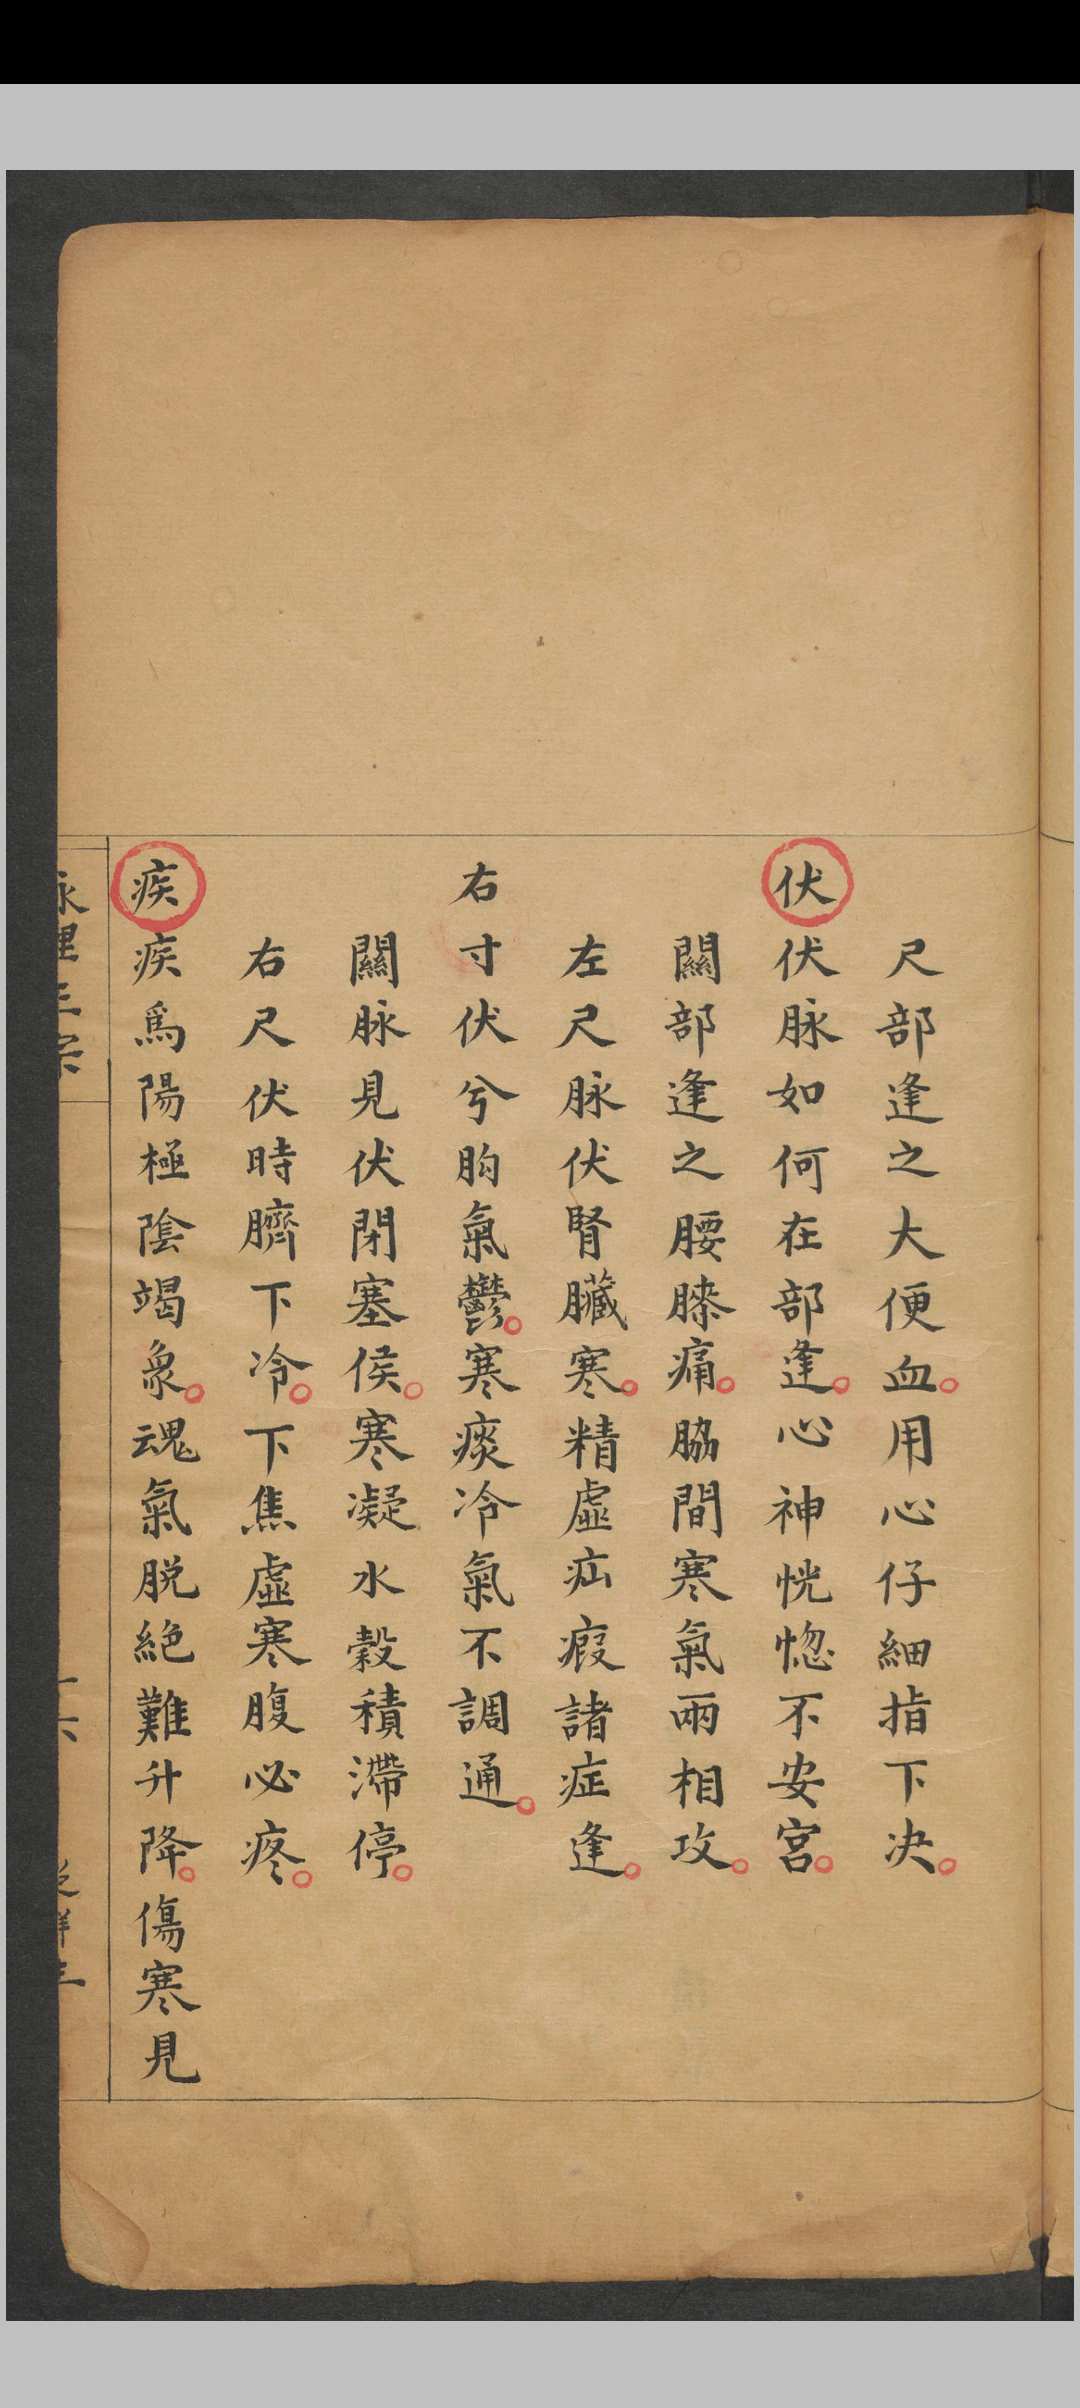 尺部逢之大便血。用心仔細指下决。
伏伏脉如何在部逢。心神恍惚不安宮。
關部逢之腰膝痛。脇間寒氣兩相攻。
左尺脉伏腎臟寒。精虛疝瘕諸症逢。
右寸伏兮胸氣鬱。寒痰冷氣不調通。
關脉見伏閉塞侯。寒凝水穀積滯停。
右尺伏時臍下冷。下焦虛寒腹必疼。
疾疾爲陽極陰竭象。魂氣脱絕難升降。傷寒見